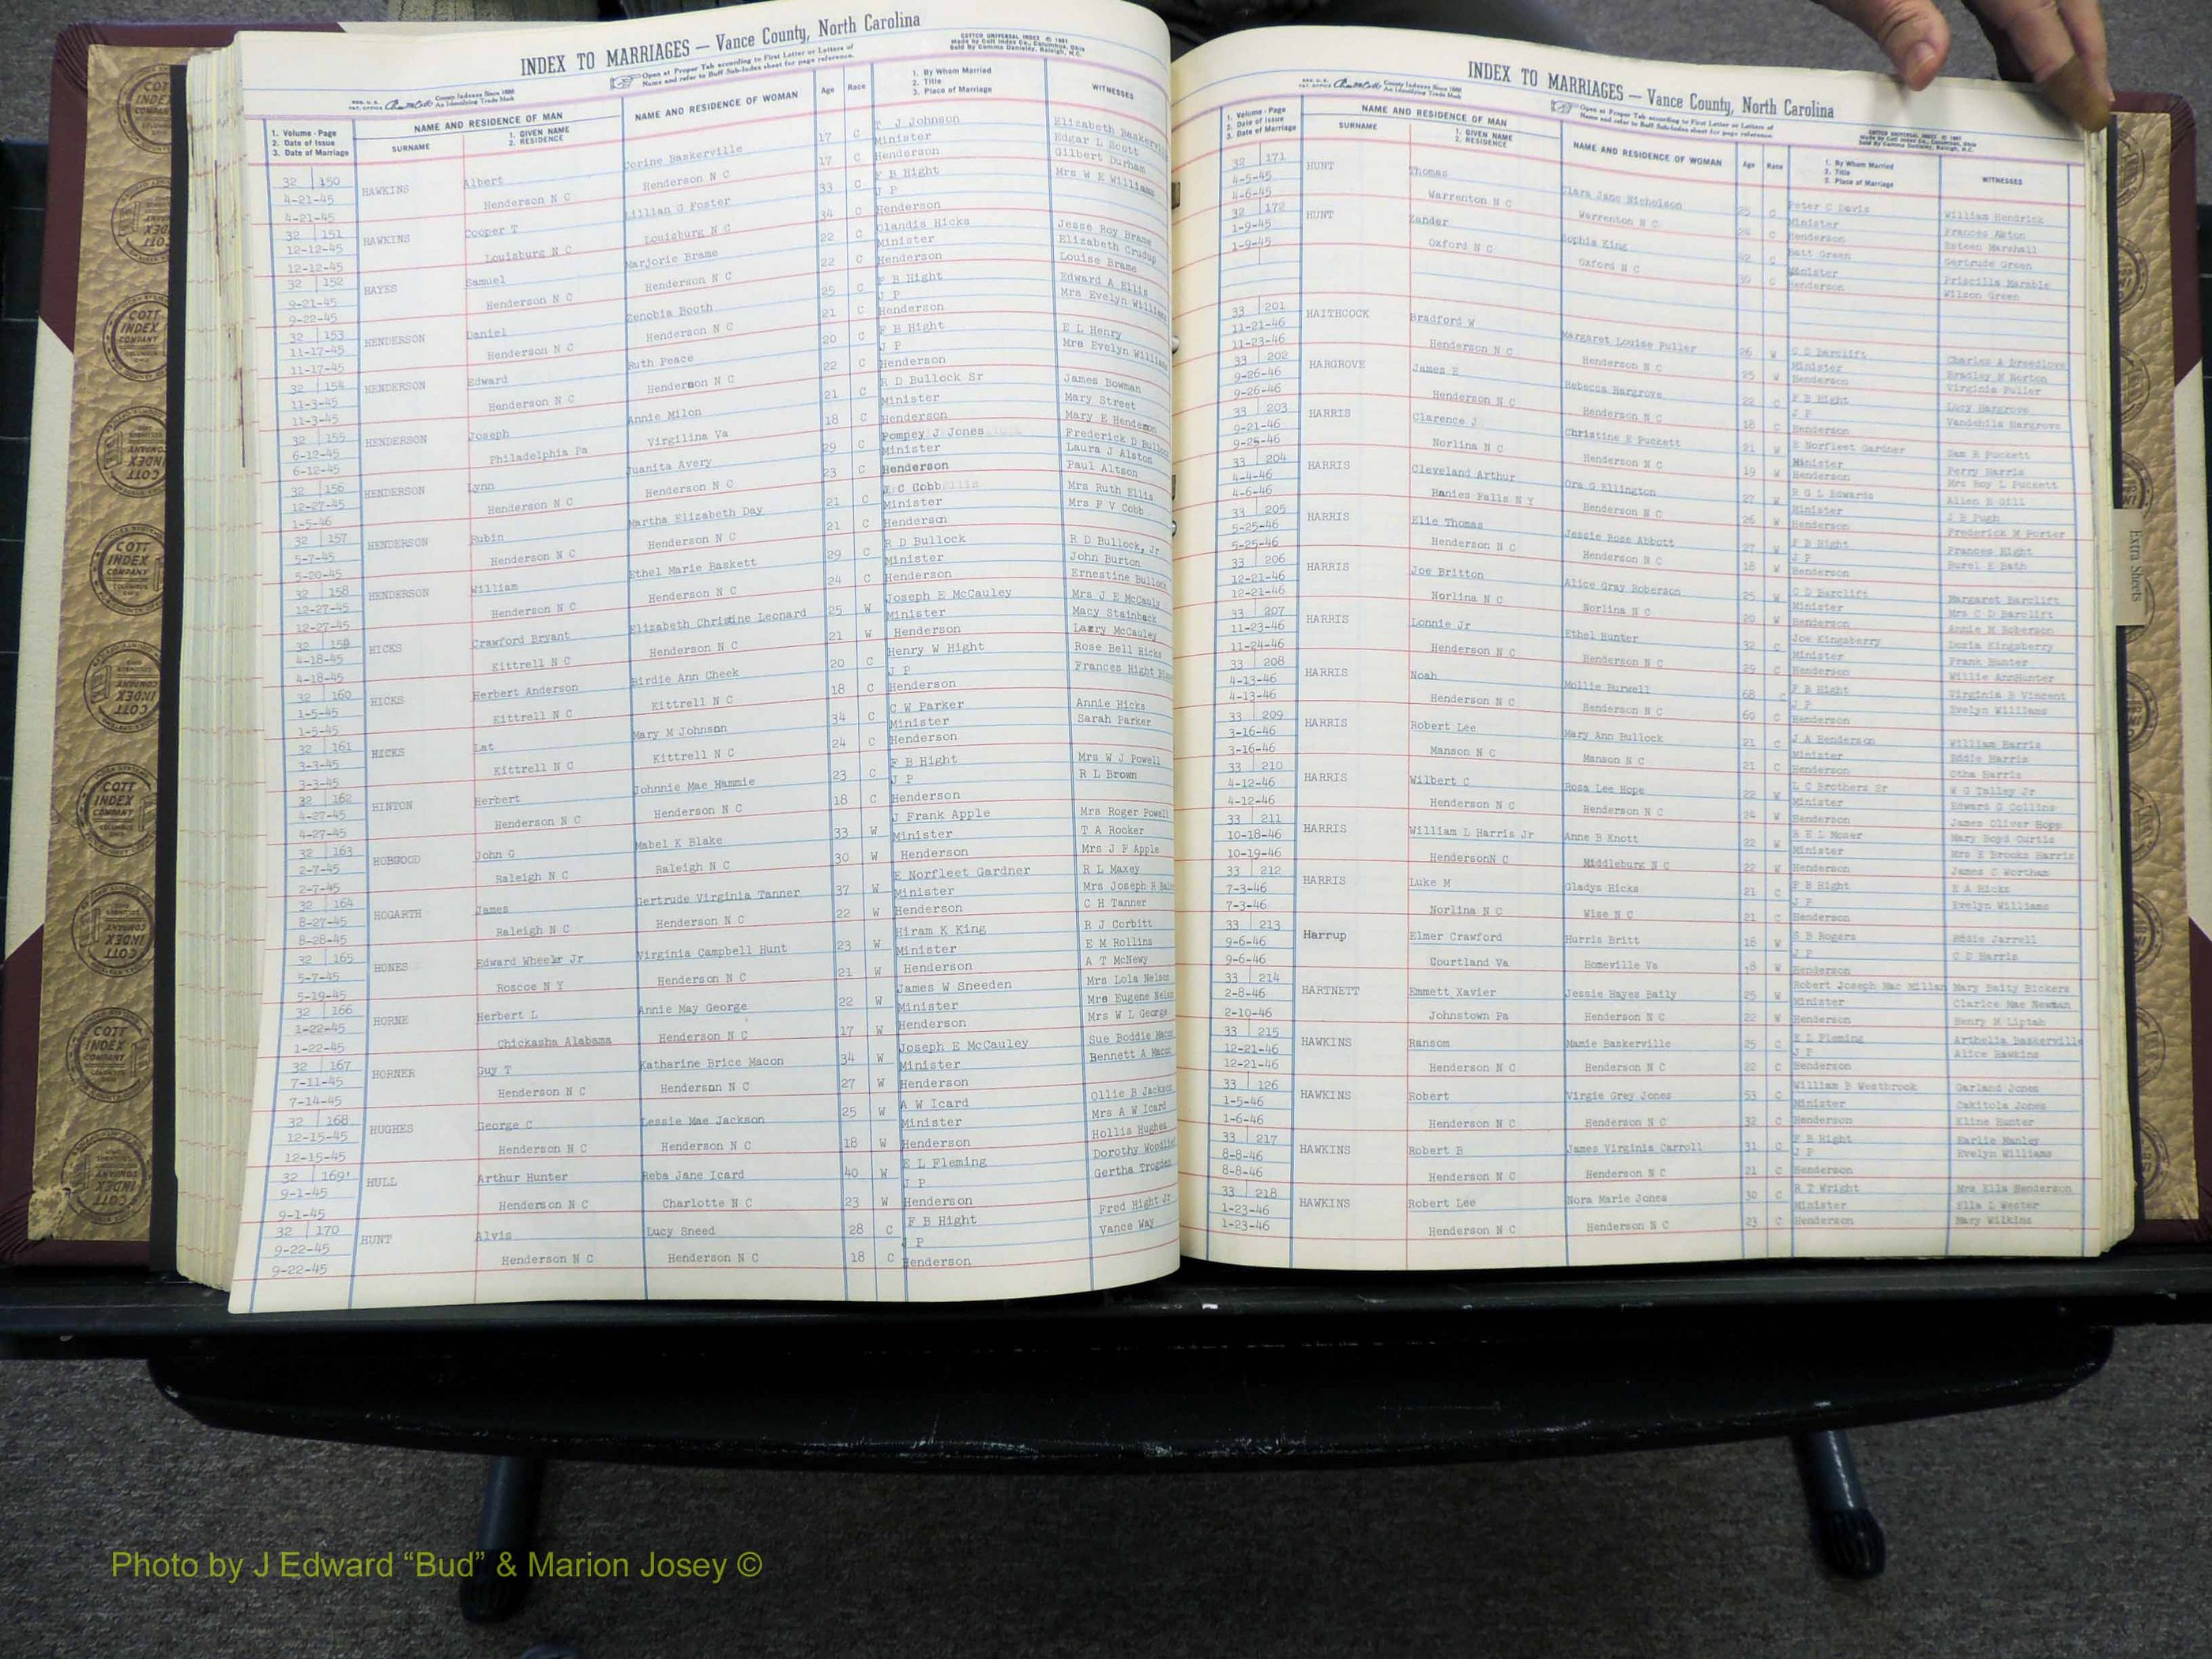 INDEX TO MARRIAGES — Vance County, North Carolina
COTTCO UNIVERSAL INDEX © 1961
Made by Cott Index Co., Columbus, Ohio
Open at Proper Tab according to First Letter or Letters of
Name and refer to Buff Sub-Index sheet for page reference.
County Indexes Since 1888
An Identifying Trade Mark
1. Volume - Page
2. Date of Issue
3. Date of Marriage
NAME AND RESIDENCE OF MAN
SURNAME
1. GIVEN NAME
2. RESIDENCE
NAME AND RESIDENCE OF WOMAN
Age
Race
1. By Whom Married
2. Title
3. Place of Marriage
WITNESSES
32 150 HAWKINS Albert Corine Baskerville 17 C J Johnson
4-21-45 Henderson N C Henderson N C 17 C Minister Edgar L Scott
4-21-45 Henderson Gilbert Durham
32 151 HAWKINS Cooper T Lillian G Foster 33 C F B Hight Mrs W E Williams
12-12-45 Louisburg N C Louisburg N C 34 C J P
12-12-45 Henderson
32 152 HAYES Samuel Marjorie Brame 22 C Olandis Hicks Jesse Roy Brame
9-21-45 Henderson N C Henderson N C 22 C Minister Elizabeth Crudup
9-22-45 Henderson Louise Brame
32 153 HENDERSON Daniel Zenobia Booth 25 C F B Hight Edward A Ellis
11-17-45 Henderson N C Henderson N C 21 C J P Mrs Evelyn Williams
11-17-45 Henderson
32 154 HENDERSON Edward Ruth Peace 20 C F B Hight E L Henry
11-3-45 Henderson N C Henderson N C 22 C J P Mrs Evelyn Williams
11-3-45 Henderson
32 155 HENDERSON Joseph Annie Milon 21 C R D Bullock Sr James Bowman
6-12-45 Philadelphia Pa Virgilina Va 18 C Minister Mary Street
6-12-45 Henderson Mary E Henderson
32 156 HENDERSON Lynn Juanita Avery 29 C Pompey J Jones Frederick D Bullock
12-27-45 Henderson N C Henderson N C 23 C Minister Laura J Alston
1-5-46 Henderson Paul Altson
32 157 HENDERSON Rubin Martha Elizabeth Day 21 C C Cobb Mrs Ruth Ellis
5-7-45 Henderson N C Henderson N C 21 C Minister Mrs F V Cobb
5-20-45 Henderson
32 158 HENDERSON William Ethel Marie Baskett 29 C R D Bullock R D Bullock, Jr
12-27-45 Henderson N C Henderson N C 24 C Minister John Burton
12-27-45 Henderson Ernestine Bullock
32 159 HICKS Crawford Bryant Elizabeth Christine Leonard 25 W Joseph E McCauley Mrs J E McCauly
4-18-45 Kittrell N C Henderson N C 21 W Minister Macy Stainback
4-18-45 Henderson Larry McCauley
32 160 HICKS Herbert Anderson Birdie Ann Cheek 20 C Henry W Hight Rose Bell Hicks
1-5-45 Kittrell N C Kittrell N C 18 C J P Frances Hight
1-5-45 Henderson
32 161 HICKS Lat Mary M Johnson 34 C C W Parker Annie Hicks
3-3-45 Kittrell N C Kittrell N C 24 C Minister Sarah Parker
3-3-45 Henderson
32 162 HINTON Herbert Johnnie Mae Hammie 23 C F B Hight Mrs W J Powell
4-27-45 Henderson N C Henderson N C 18 C J P R L Brown
4-27-45 Henderson
32 163 HOBGOOD John G Mabel K Blake 33 W J Frank Apple Mrs Roger Powell
2-7-45 Raleigh N C Raleigh N C 30 W Minister T A Rooker
2-7-45 Henderson Mrs J F Apple
32 164 HOGARTH James Gertrude Virginia Tanner 37 W E Norfleet Gardner R L Maxey
8-27-45 Raleigh N C Henderson N C 22 W Minister Mrs Joseph R
8-28-45 Henderson C H Tanner
32 165 HONES Edward Wheeler Jr Virginia Campbell Hunt 23 W Hiram K King R J Corbitt
5-7-45 Roscoe N Y Henderson N C 21 W Minister E M Rollins
5-19-45 Henderson A T McNewy
32 166 HORNE Herbert L Annie May George 22 W James W Sneeden Mrs Lola Nelson
1-22-45 Chickasha Alabama Henderson N C 17 W Minister Mrs Eugene Nelson
1-22-45 Henderson Mrs W L George
32 167 HORNER Guy T Katharine Brice Macon 34 W Joseph E McCauley Sue Boddie Macon
7-11-45 Henderson N C Henderson N C 27 W Minister Bennett A Macon
7-14-45 Henderson
32 168 HUGHES George C Lessie Mae Jackson 25 W A W Icard Ollie B Jackson
12-15-45 Henderson N C Henderson N C 18 W Minister Mrs A W Icard
12-15-45 Henderson Hollis Hughes
32 169 HULL Arthur Hunter Reba Jane Icard 40 W E L Fleming Dorothy Woodlief
9-1-45 Henderson N C Charlotte N C 23 W J P Gertha Trogden
9-1-45 Henderson
32 170 HUNT Alvis Lucy Sneed 28 C F B Hight Fred Hight Jr
9-22-45 Henderson N C Henderson N C 18 C J P Vance Way
9-22-45 Henderson
INDEX TO MARRIAGES — Vance County, North Carolina
Open at Proper Tab according to First Letter or Letters of
Name and refer to Buff Sub-Index sheet for page reference.
County Indexes Since 1888
An Identifying Trade Mark
1. Volume - Page
2. Date of Issue
3. Date of Marriage
NAME AND RESIDENCE OF MAN
SURNAME
1. GIVEN NAME
2. RESIDENCE
NAME AND RESIDENCE OF WOMAN
Age
Race
1. By Whom Married
2. Title
3. Place of Marriage
WITNESSES
32 171 HUNT Thomas Clara Jane Nicholson 25 C Peter C Davis William Hendrick
4-5-45 Warrenton N C Warrenton N C 24 C Minister Frances Alston
4-6-45 Henderson Esteen Marshall
32 172 HUNT Zander Sophia King 42 C Batt Green Gertrude Green
1-9-45 Oxford N C Oxford N C 30 C Minister Priscilla Marable
1-9-45 Henderson Wilson Green
33 201 HAITHCOCK Bradford W Margaret Louise Fuller 26 W C D Barclift Charles A Breedlove
11-21-46 Henderson N C Henderson N C 25 W Minister Bradley M Norton
11-23-46 Henderson Virginia Fuller
33 202 HARGROVE James E Rebecca Hargrove 22 C F B Hight Lucy Hargrove
9-26-46 Henderson N C Henderson N C 18 C J P Vandehlia Hargrove
9-26-46 Henderson
33 203 HARRIS Clarence J Christine E Puckett 21 W E Norfleet Gardner Sam R Puckett
9-21-46 Norlina N C Henderson N C 19 W Minister Perry Harris
9-25-46 Henderson Mrs Roy L Puckett
33 204 HARRIS Cleveland Arthur Ora G Ellington 27 W R G L Edwards Allen E Gill
4-4-46 Hanies Falls N Y Henderson N C 26 W Minister J B Pugh
4-6-46 Henderson Frederick M Porter
33 205 HARRIS Elie Thomas Jessie Rose Abbott 27 W F B Hight Frances Hight
5-25-46 Henderson N C Henderson N C 18 W J P Burel E Bath
5-25-46 Henderson
33 206 HARRIS Joe Britton Alice Gray Roberson 25 W C D Barclift Margaret Barclift
12-21-46 Norlina N C Norlina N C 20 W Minister Mrs C D Barclift
12-21-46 Henderson Annie M Roberson
33 207 HARRIS Lonnie Jr Ethel Hunter 32 C Joe Kingsberry Dozia Kingsberry
11-23-46 Henderson N C Henderson N C 29 C Minister Frank Hunter
11-24-46 Henderson Willie AnnHunter
33 208 HARRIS Noah Mollie Burwell 68 C F B Hight Virginia B Vincent
4-13-46 Henderson N C Henderson N C 60 C J P Evelyn Williams
4-13-46 Henderson
33 209 HARRIS Robert Lee Mary Ann Bullock 21 C J A Henderson William Harris
3-16-46 Manson N C Manson N C 21 C Minister Eddie Harris
3-16-46 Henderson Otha Harris
33 210 HARRIS Wilbert C Rosa Lee Hope 22 W L C Brothers Sr W G Talley Jr
4-12-46 Henderson N C Henderson N C 24 W Minister Edward G Collins
4-12-46 Henderson James Oliver Hopp
33 211 HARRIS William L Harris Jr Anne B Knott 22 W R E L Moser Mary Boyd Curtis
10-18-46 HendersonN C Middleburg N C 22 W Minister Mrs E Brooks Harris
10-19-46 Henderson James C Wortham
33 212 HARRIS Luke M Gladys Hicks 21 C F B Hight E A Hicks
7-3-46 Norlina N C Wise N C 21 C J P Evelyn Williams
7-3-46 Henderson
33 213 Harrup Elmer Crawford Hurris Britt 18 W S B Rogers Eddie Jarrell
9-6-46 Courtland Va Homeville Va 18 W J P C D Harris
9-6-46 Henderson
33 214 HARTNETT Emmett Xavier Jessie Hayes Baity 25 W Robert Joseph Mac Millan Mary Baity Bickers
2-8-46 Johnstown Pa Henderson N C 22 W Minister Clarice Mae Newman
2-10-46 Henderson Henry M Liptah
33 215 HAWKINS Ransom Mamie Baskerville 25 C E L Fleming Arthelia Baskerville
12-21-46 Henderson N C Henderson N C 22 C J P Alice Hawkins
12-21-46 Henderson
33 126 HAWKINS Robert Virgie Grey Jones 53 C William B Westbrook Garland Jones
1-5-46 Henderson N C Henderson N C 32 C Minister Oakitola Jones
1-6-46 Henderson Kline Hunter
33 217 HAWKINS Robert B James Virginia Carroll 31 C F B Hight Earlie Manley
8-8-46 Henderson N C Henderson N C 21 C J P Evelyn Williams
8-8-46 Henderson
33 218 HAWKINS Robert Lee Nora Marie Jones 30 C R T Wright Mrs Ella Henderson
1-23-46 Henderson N C Henderson N C 23 C Minister Ella L Wester
1-23-46 Henderson Mary Wilkins
Extra Sheets
COTT INDEX COMPANY
Photo by J Edward “Bud” & Marion Josey ©